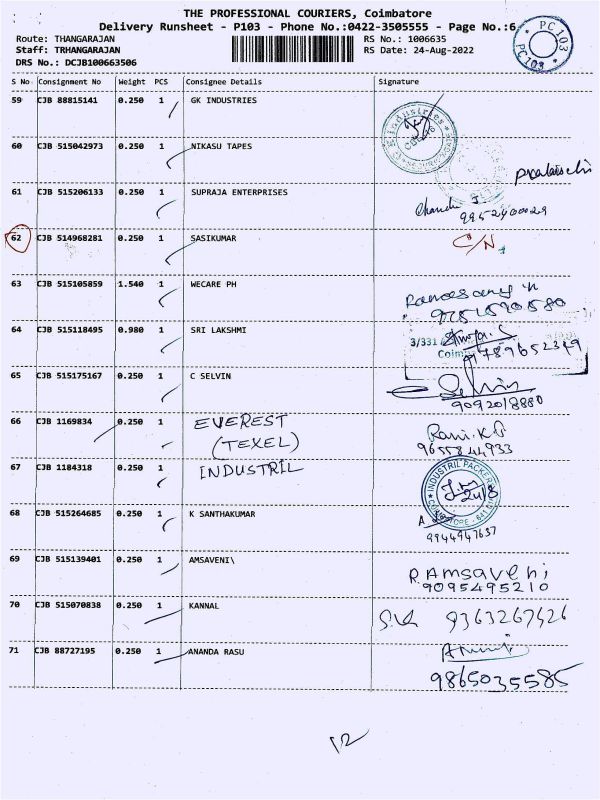 THE PROFESSIONAL COURIERS, Coimbatore
Delivery Runsheet - P103 - Phone No.:0422-3505555 - Page No.:6
Route: THANGARAJAN RS No.: 1006635
Staff: TRHANGARAJAN RS Date: 24-Aug-2022
DRS No.: DCJB100663506
PC103
PC103
S No Consignment No Weight PCS Consignee Details Signature
59 CJB 88815141 0.250 1 GK INDUSTRIES
60 CJB 515042973 0.250 1 NIKASU TAPES
61 CJB 515206133 0.250 1 SUPRAJA ENTERPRISES
62 CJB 514968281 0.250 1 SASIKUMAR C/N
63 CJB 515105859 1.540 1 WECARE PH
64 CJB 515118495 0.980 1 SRI LAKSHMI
3/331
9789652349
65 CJB 515175167 0.250 1 C SELVIN
9092018880
66 CJB 1169834 0.250 1 EVEREST Rani.K
(TEXEL) 9655844933
67 CJB 1184318 0.250 1 INDUSTRIL
INDUSTRIL PACKERS
68 CJB 515264685 0.250 1 K SANTHAKUMAR
9944947637
69 CJB 515139401 0.250 1 AMSAVENI\ R.AMSAVENI
9095495210
70 CJB 515070838 0.250 1 KANNAL 9363267426
71 CJB 88727195 0.250 1 ANANDA RASU
9865035585
12